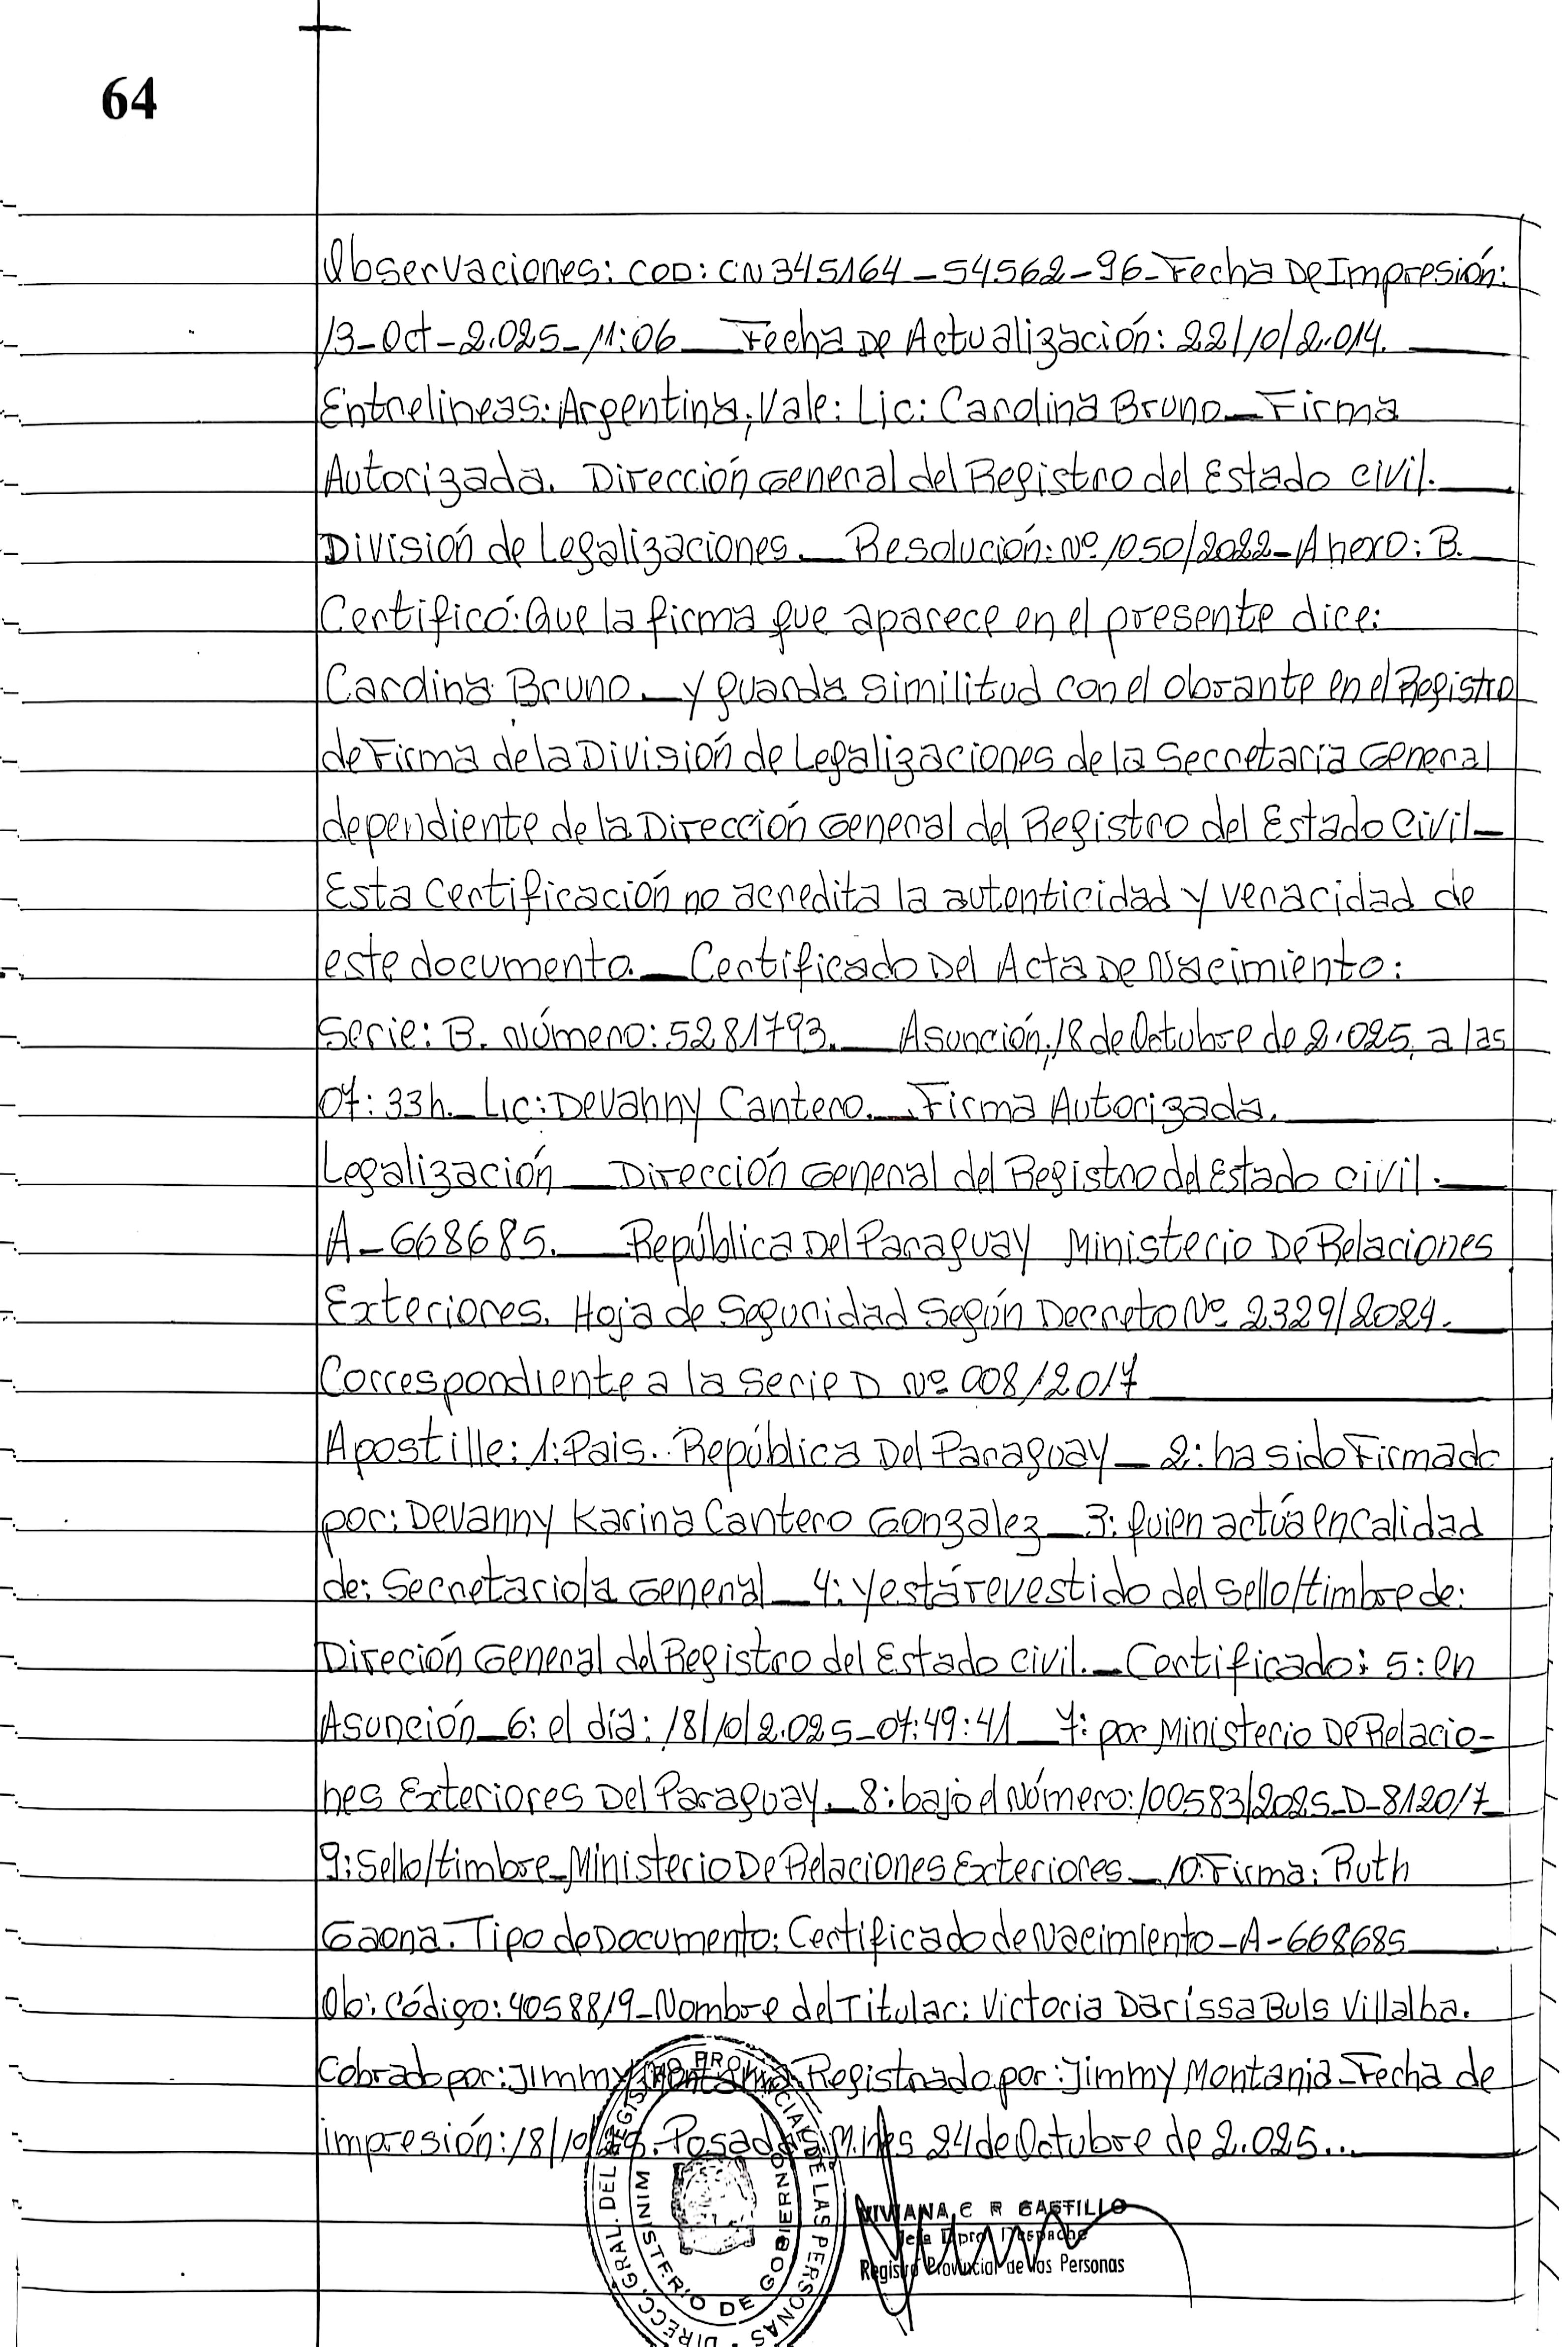 64
Observaciones: COD: CN345164-54562-96-Fecha De Impresión:
13-Oct-2.025-11:06 _ Fecha De Actualización: 22/10/2.014.
Entrelineas: Argentina, Vale: Lic: Carolina Bruno _ Firma
Autorizada. Dirección General del Registro del Estado civil.
División de Legalizaciones. _ Resolución: Nº 1050/2022-Anexo: B.
Certificó: Que la firma que aparece en el presente dice:
Carolina Bruno _ y guarda similitud con el obrante en el Registro
de Firma de la División de Legalizaciones de la Secretaría General
dependiente de la Dirección General del Registro del Estado Civil _
Esta Certificación no acredita la autenticidad y veracidad de
este documento. _ Certificado Del Acta De Nacimiento:
Serie: B. Número: 5281793. _ Asunción, 18 de Octubre de 2.025, a las
07:33h. _ Lic: Devanny Cantero. _ Firma Autorizada.
Legalización _ Dirección General del Registro del Estado civil.
A-668685. _ República Del Paraguay Ministerio De Relaciones
Exteriores. Hoja de Seguridad Según Decreto Nº 2329/2024.
Correspondiente a la Serie D Nº 008/2017
Apostille: 1: Pais. República Del Paraguay _ 2: ha sido Firmado
por: Devanny Karina Cantero Gonzalez _ 3: quien actúa en calidad
de: Secretario/a General _ 4: y está revestido del sello/timbre de:
Direción General del Registro del Estado civil. _ Certificado: 5: en
Asunción _ 6: el día: 18/10/2.025-07:49:41 _ 7: por Ministerio De Relacio-
nes Exteriores Del Paraguay. _ 8: bajo el Número: 100583/2025-D-812017_
9: Sello/timbre _ Ministerio De Relaciones Exteriores _ 10: Firma: Ruth
Gaona. Tipo de Documento: Certificado de Nacimiento-A-668685
Ob: Código: 4058819-Nombre del Titular: Victoria Darissa Buls Villalba.
Cobrado por: Jimmy Montania Registrado por: Jimmy Montania-Fecha de
impresión: 18/10/25. Posadas. M.nes 24 de Octubre de 2.025...
DIRECC. GRAL. DEL REGISTRO PROVINCIAL DE LAS PERSONAS
MINISTERIO DE GOBIERNO
VIVIANA C R CASTILLO
Jefa Dpto Despacho
Registro Provincial de las Personas